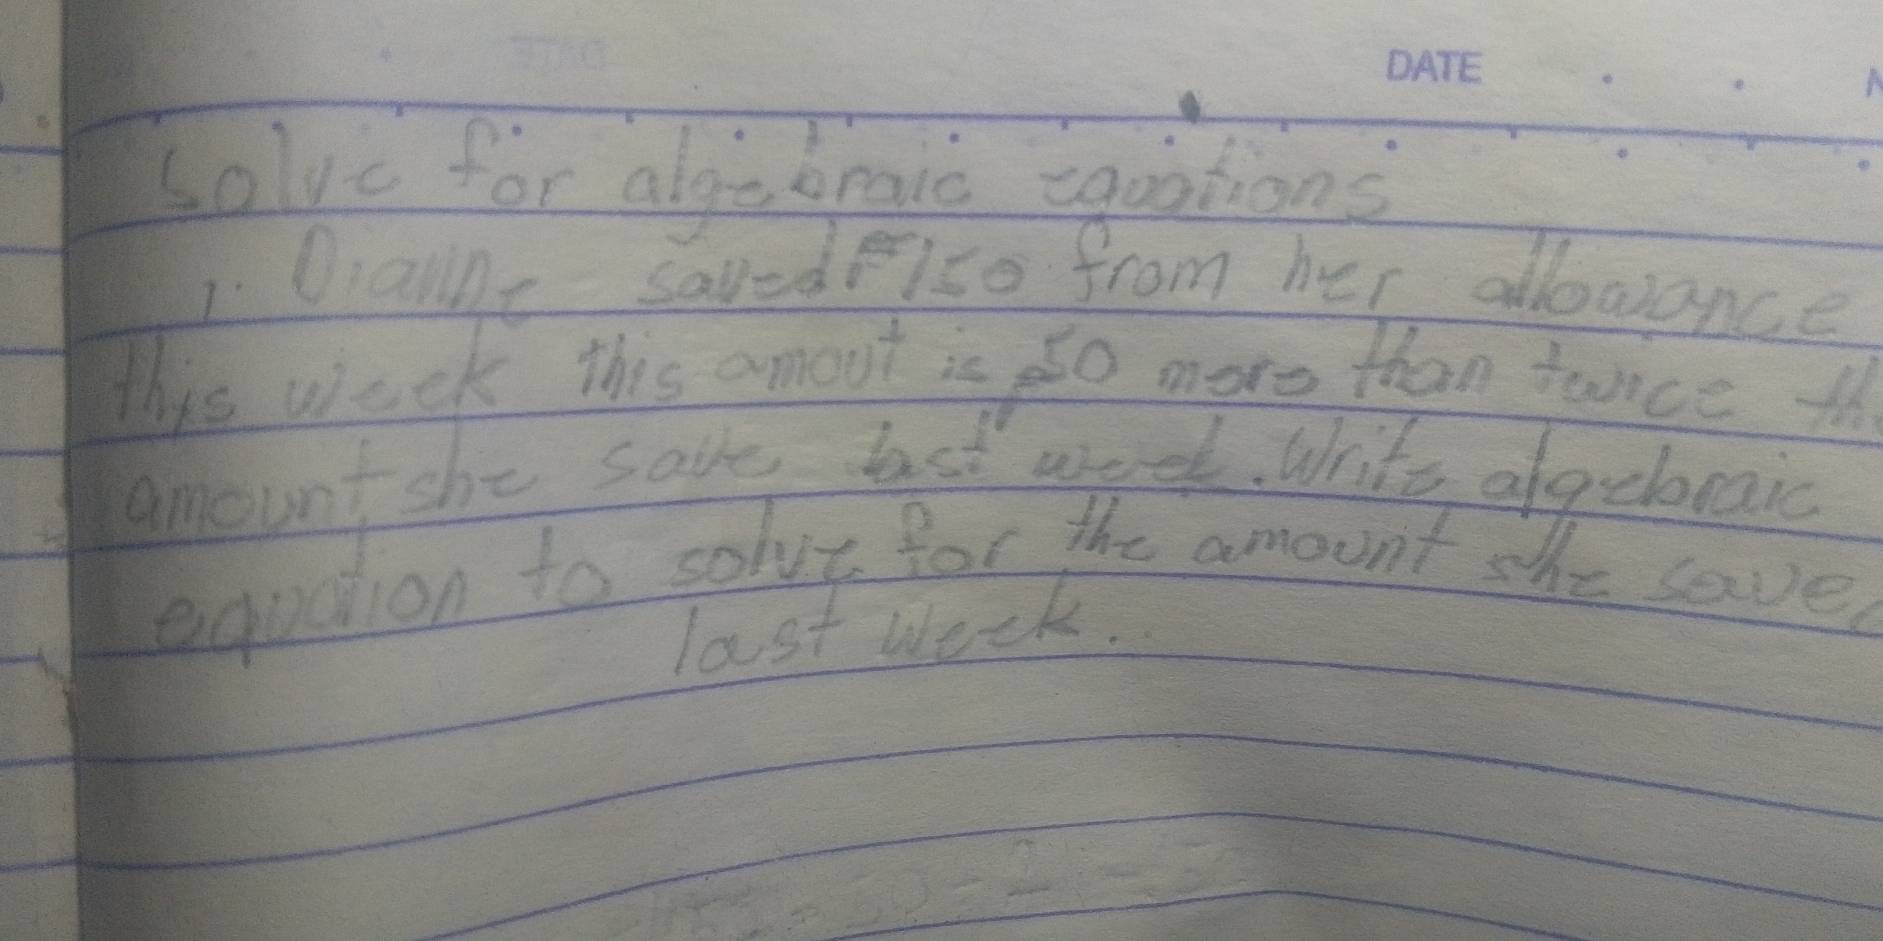 DATE
solve for algebraic equations
1. Dianne saved ₱150 from her allowance
this week this amout is 50 more than twice th
amount she save last week. Write algebraic
equation to solve for the amount she save
last week.